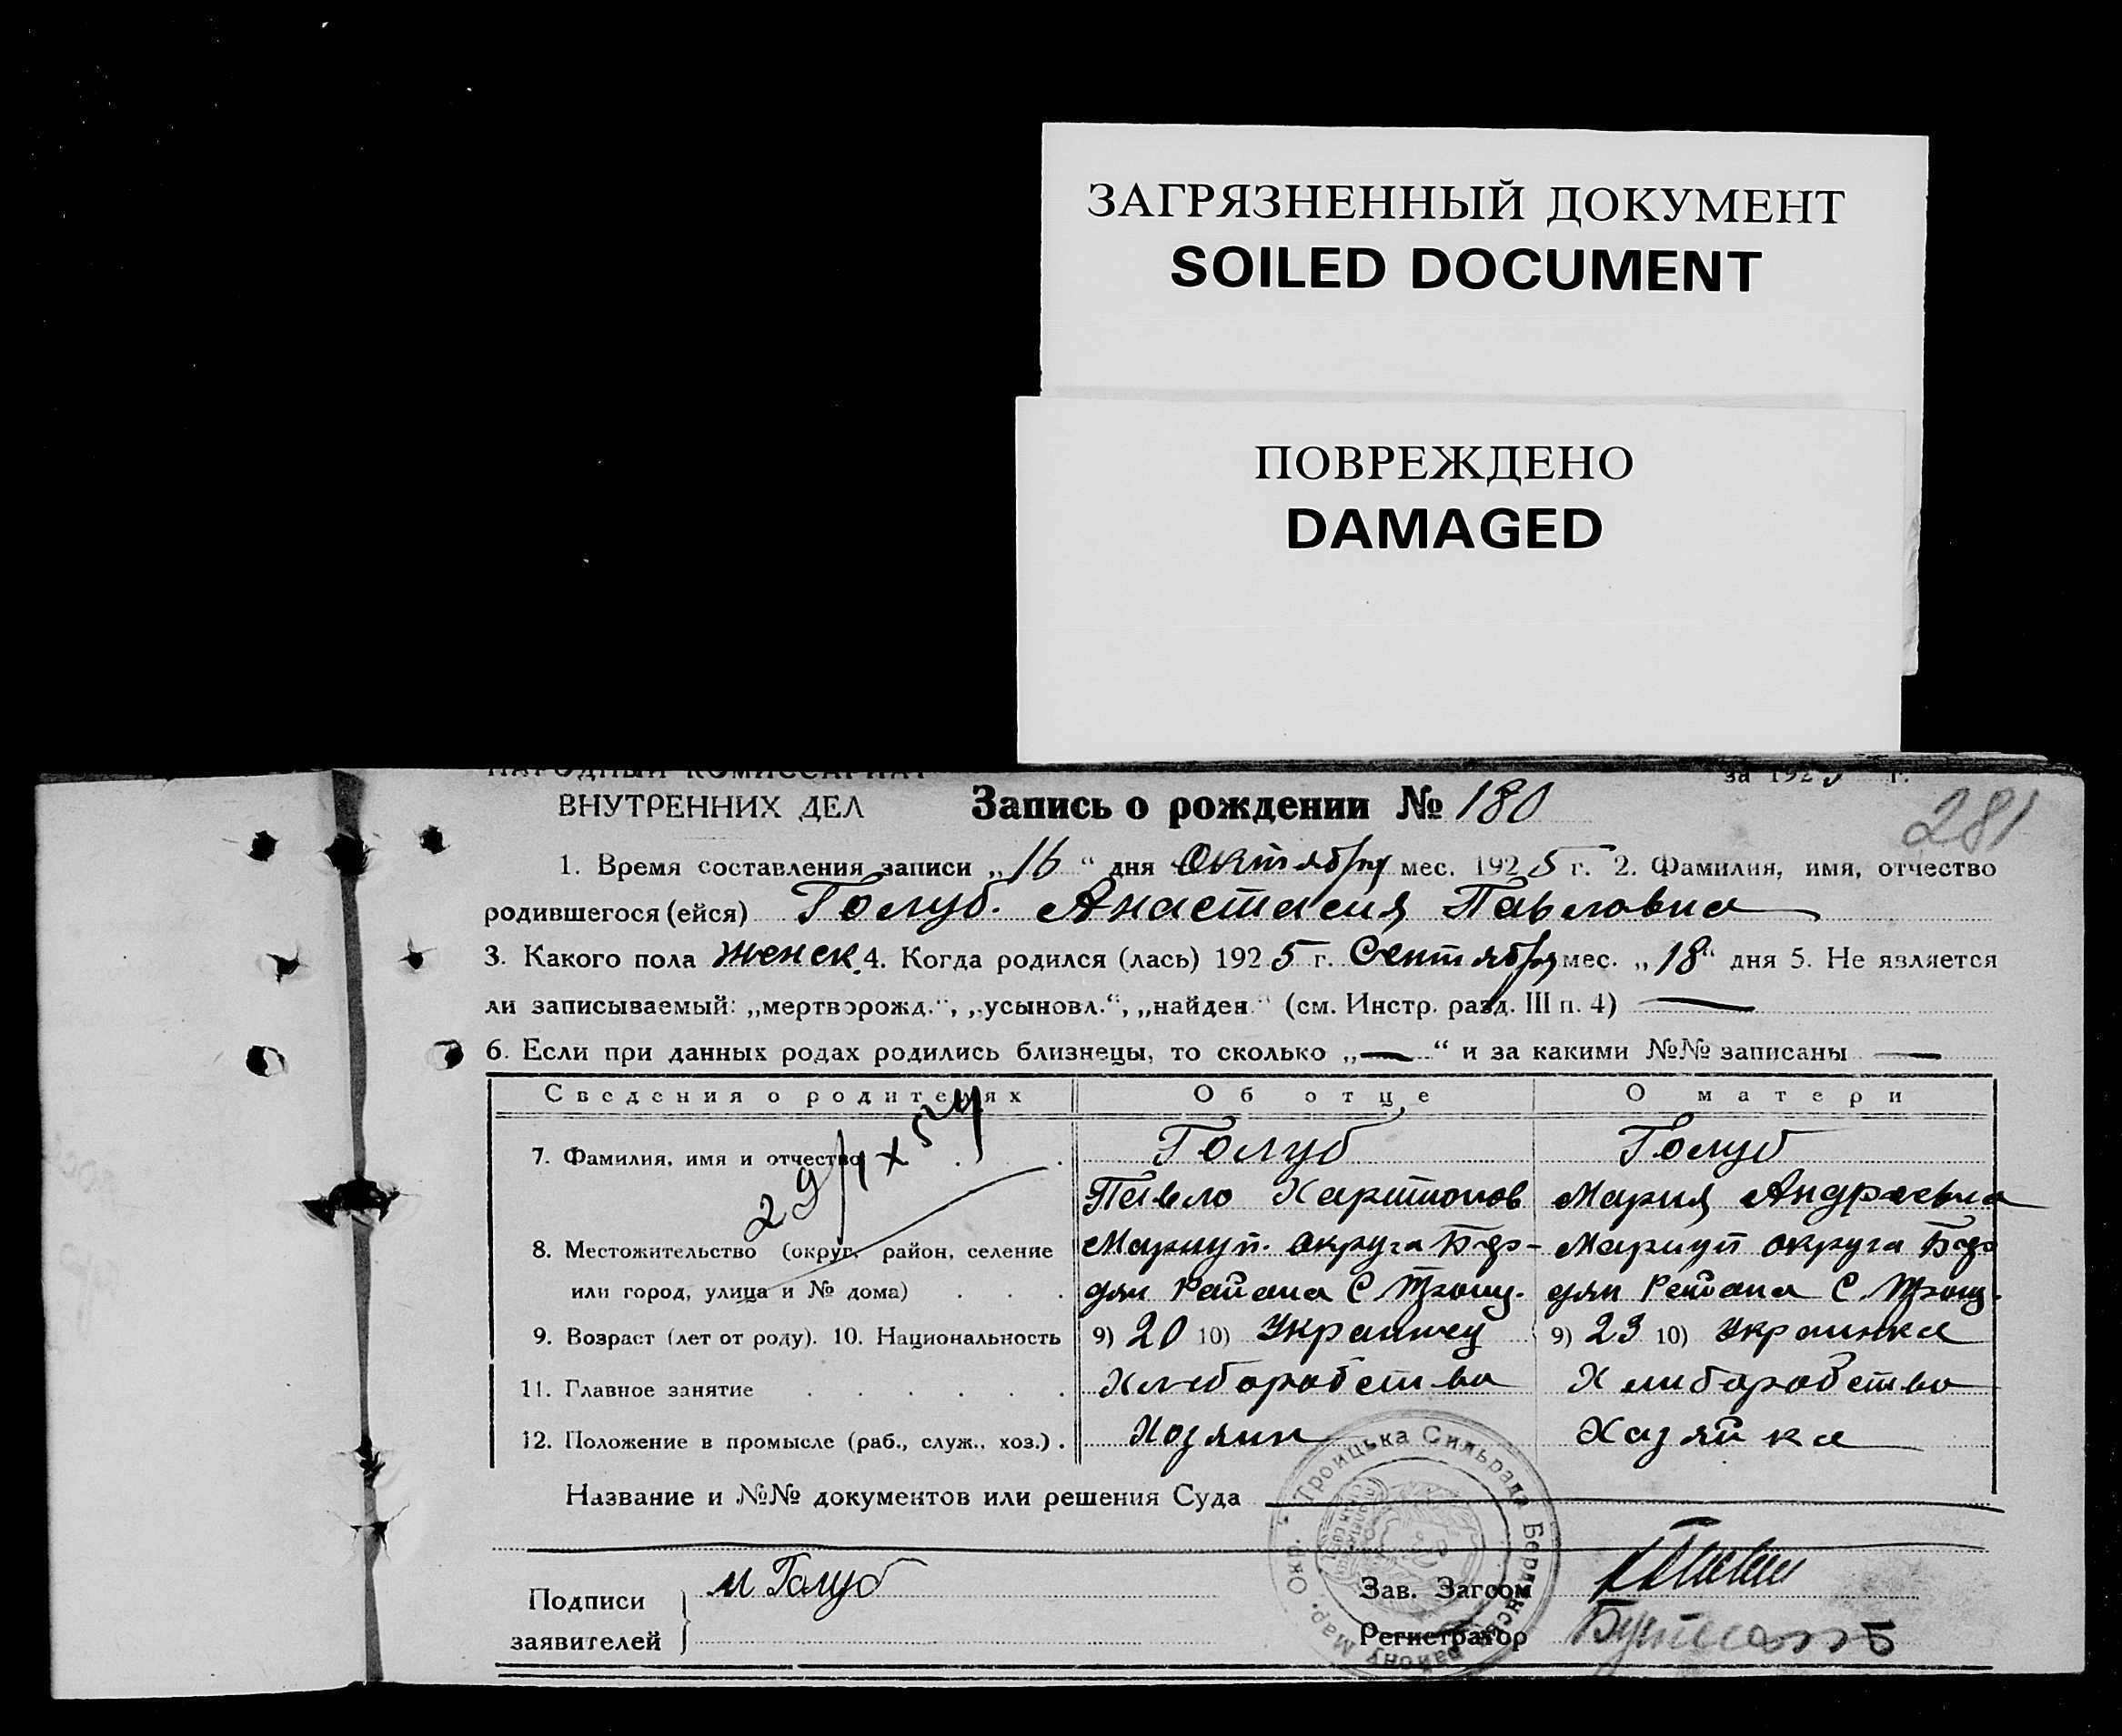 ЗАГРЯЗНЕННЫЙ ДОКУМЕНТ
SOILED DOCUMENT
ПОВРЕЖДЕНО
DAMAGED
НАРОДНЫЙ КОМИССАРИАТ за 1925 г.
ВНУТРЕННИХ ДЕЛ Запись о рождении № 180 281
1. Время составления записи „16“ дня Октября мес. 1925 г. 2. Фамилия, имя, отчество
родившегося (ейся) Голуб. Анастасия Павловна
3. Какого пола женск. 4. Когда родился (лась) 1925 г. Сентября мес. „18“ дня 5. Не является
ли записываемый: „мертворожд.“, „усыновл.“, „найден“ (см. Инстр. разд. III п. 4) —
6. Если при данных родах родились близнецы, то сколько „—“ и за какими №№ записаны —
Сведения о родителях Об отце О матери
7. Фамилия, имя и отчество Голуб Голуб
29/IX 54 Павло Харитонов Мария Андреевна
8. Местожительство (округ, район, селение Мариуп. округа Бер- Мариуп округа Бер
или город, улица и № дома) дян Района С Троиц. дян Района С. Троиц.
9. Возраст (лет от роду). 10. Национальность 9) 20 10) Украинец 9) 23 10) Украинка
11. Главное занятие Хлиборобство Хлиборобство
12. Положение в промысле (раб., служ., хоз.) Хозяин Хазяйка
Троицька Сильрада Бердянськ району Мар. Окр.
Название и №№ документов или решения Суда
Подписи М Голуб Зав. Загсом
заявителей Регистратор